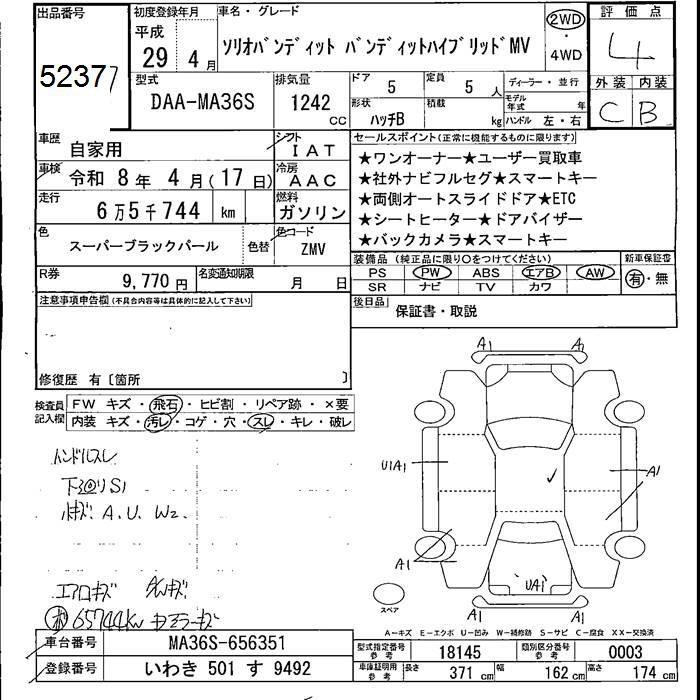 出品番号
52377
初度登録年月
平成
29年 4月
車名・グレード
ソリオバンディット バンディットハイブリッドMV
2WD
・
4WD
評価点
4
外装 内装
C B
型式
DAA-MA36S
排気量
1242
CC
ドア
5
定員
5 人
形状
ハッチB
積載
kg
ディーラー・並行
モデル年式 年
ハンドル 左・右
車歴
自家用
シフト
IAT
車検
令和 8年 4月(17日)
冷房
AAC
走行
6万5千744 km
燃料
ガソリン
色
スーパーブラックパール
色替
色コード
ZMV
R券
9,770円
名変通知期限
月 日
セールスポイント(正常に機能するものに限ります)
★ワンオーナー★ユーザー買取車
★社外ナビフルセグ★スマートキー
★両側オートスライドドア★ETC
★シートヒーター★ドアバイザー
★バックカメラ★スマートキー
装備品(純正品に限り○をつけてください)
PS PW ABS エアB AW
SR ナビ TV カワ
新車保証書
有・無
後日品
保証書・取説
注意事項申告欄(不具合内容等は具体的に記入して下さい)
修復歴 有〔箇所 〕
検査員記入欄
FW キズ・飛石・ヒビ割・リペア跡・×要
内装 キズ・汚レ・コゲ・穴・スレ・キレ・破レ
ハンドルスレ
下回りS1
A.U.W2
エアロキズ
65744km
A1 A1
U1A1
A1
A1
UA1
A1 A1
スペア
A-キズ E-エクボ U-凹み W-補修跡 S-サビ C-腐食 XX-交換済
車台番号
MA36S-656351
登録番号
いわき 501 す 9492
型式指定番号
参考
18145
類別区分番号
参考
0003
車庫証明用
参考
長さ 371 cm 幅 162 cm 高さ 174 cm